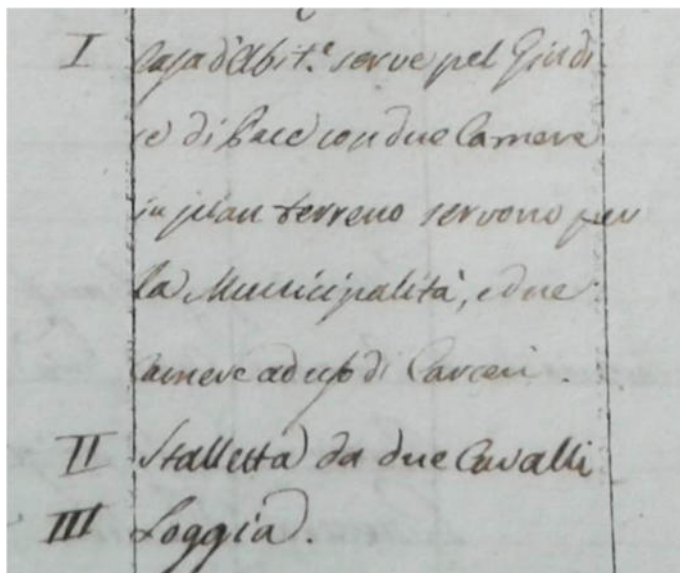 I Casa d'Abit.e serve pel Giudi
ce di Pace con due Camere
in pian terreno servono per
la Municipalità, e due
Camere ad uso di Carceri.
II Stalletta da due Cavalli
III Loggia.